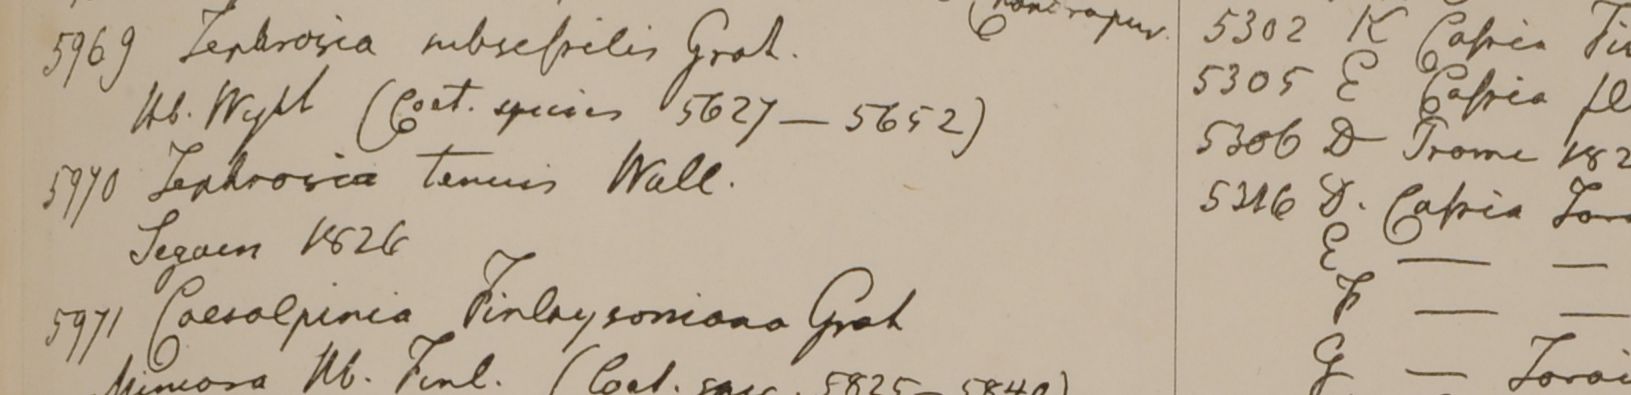 5969 Tephrosia subsessilis Grah.
Hb. Wight (Cat. species 5627 — 5652)
5970 Tephrosia tenuis Wall.
Segaen 1826
5971 Caesalpinia Finlaysoniana Grah
Mimosa Hb. Finl. (Cat. spec. 5825 — 5840)
5302 K Cassia
5305 E Cassia
5306 D Prome 182
5316 D. Cassia
E — —
F — —
G —